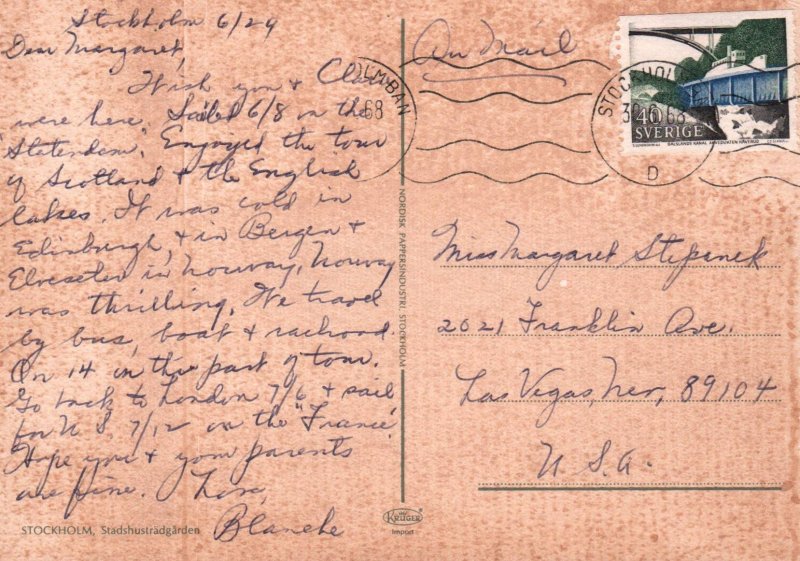 Stockholm 6/29
Dear Margaret,
Wish you & Clara
were here. Sailed 6/8 on the
"Statendam". Enjoyed the tour
of Scotland & the English
lakes. It was cold in
Edinburgh, & in Bergen &
Elveseter in Norway. Norway
was thrilling. We travel
by bus, boat & railroad.
On 14 in this part of tour.
Go back to London 7/6 & sail
for U.S. 7/12 on the "France".
Hope you & your parents
are fine. Love,
Blanche
STOCKHOLM, Stadshusträdgården
NORDISK PAPPERSINDUSTRI, STOCKHOLM
KRÜGER
Import
Air Mail
STOCKHOLM
30.6.68
D
40
SVERIGE
DALSLANDS KANAL AKVEDUKTEN HÅVERUD
Miss Margaret Stepanek
2021 Franklin Ave.
Las Vegas, Nev, 89104
U.S.A.